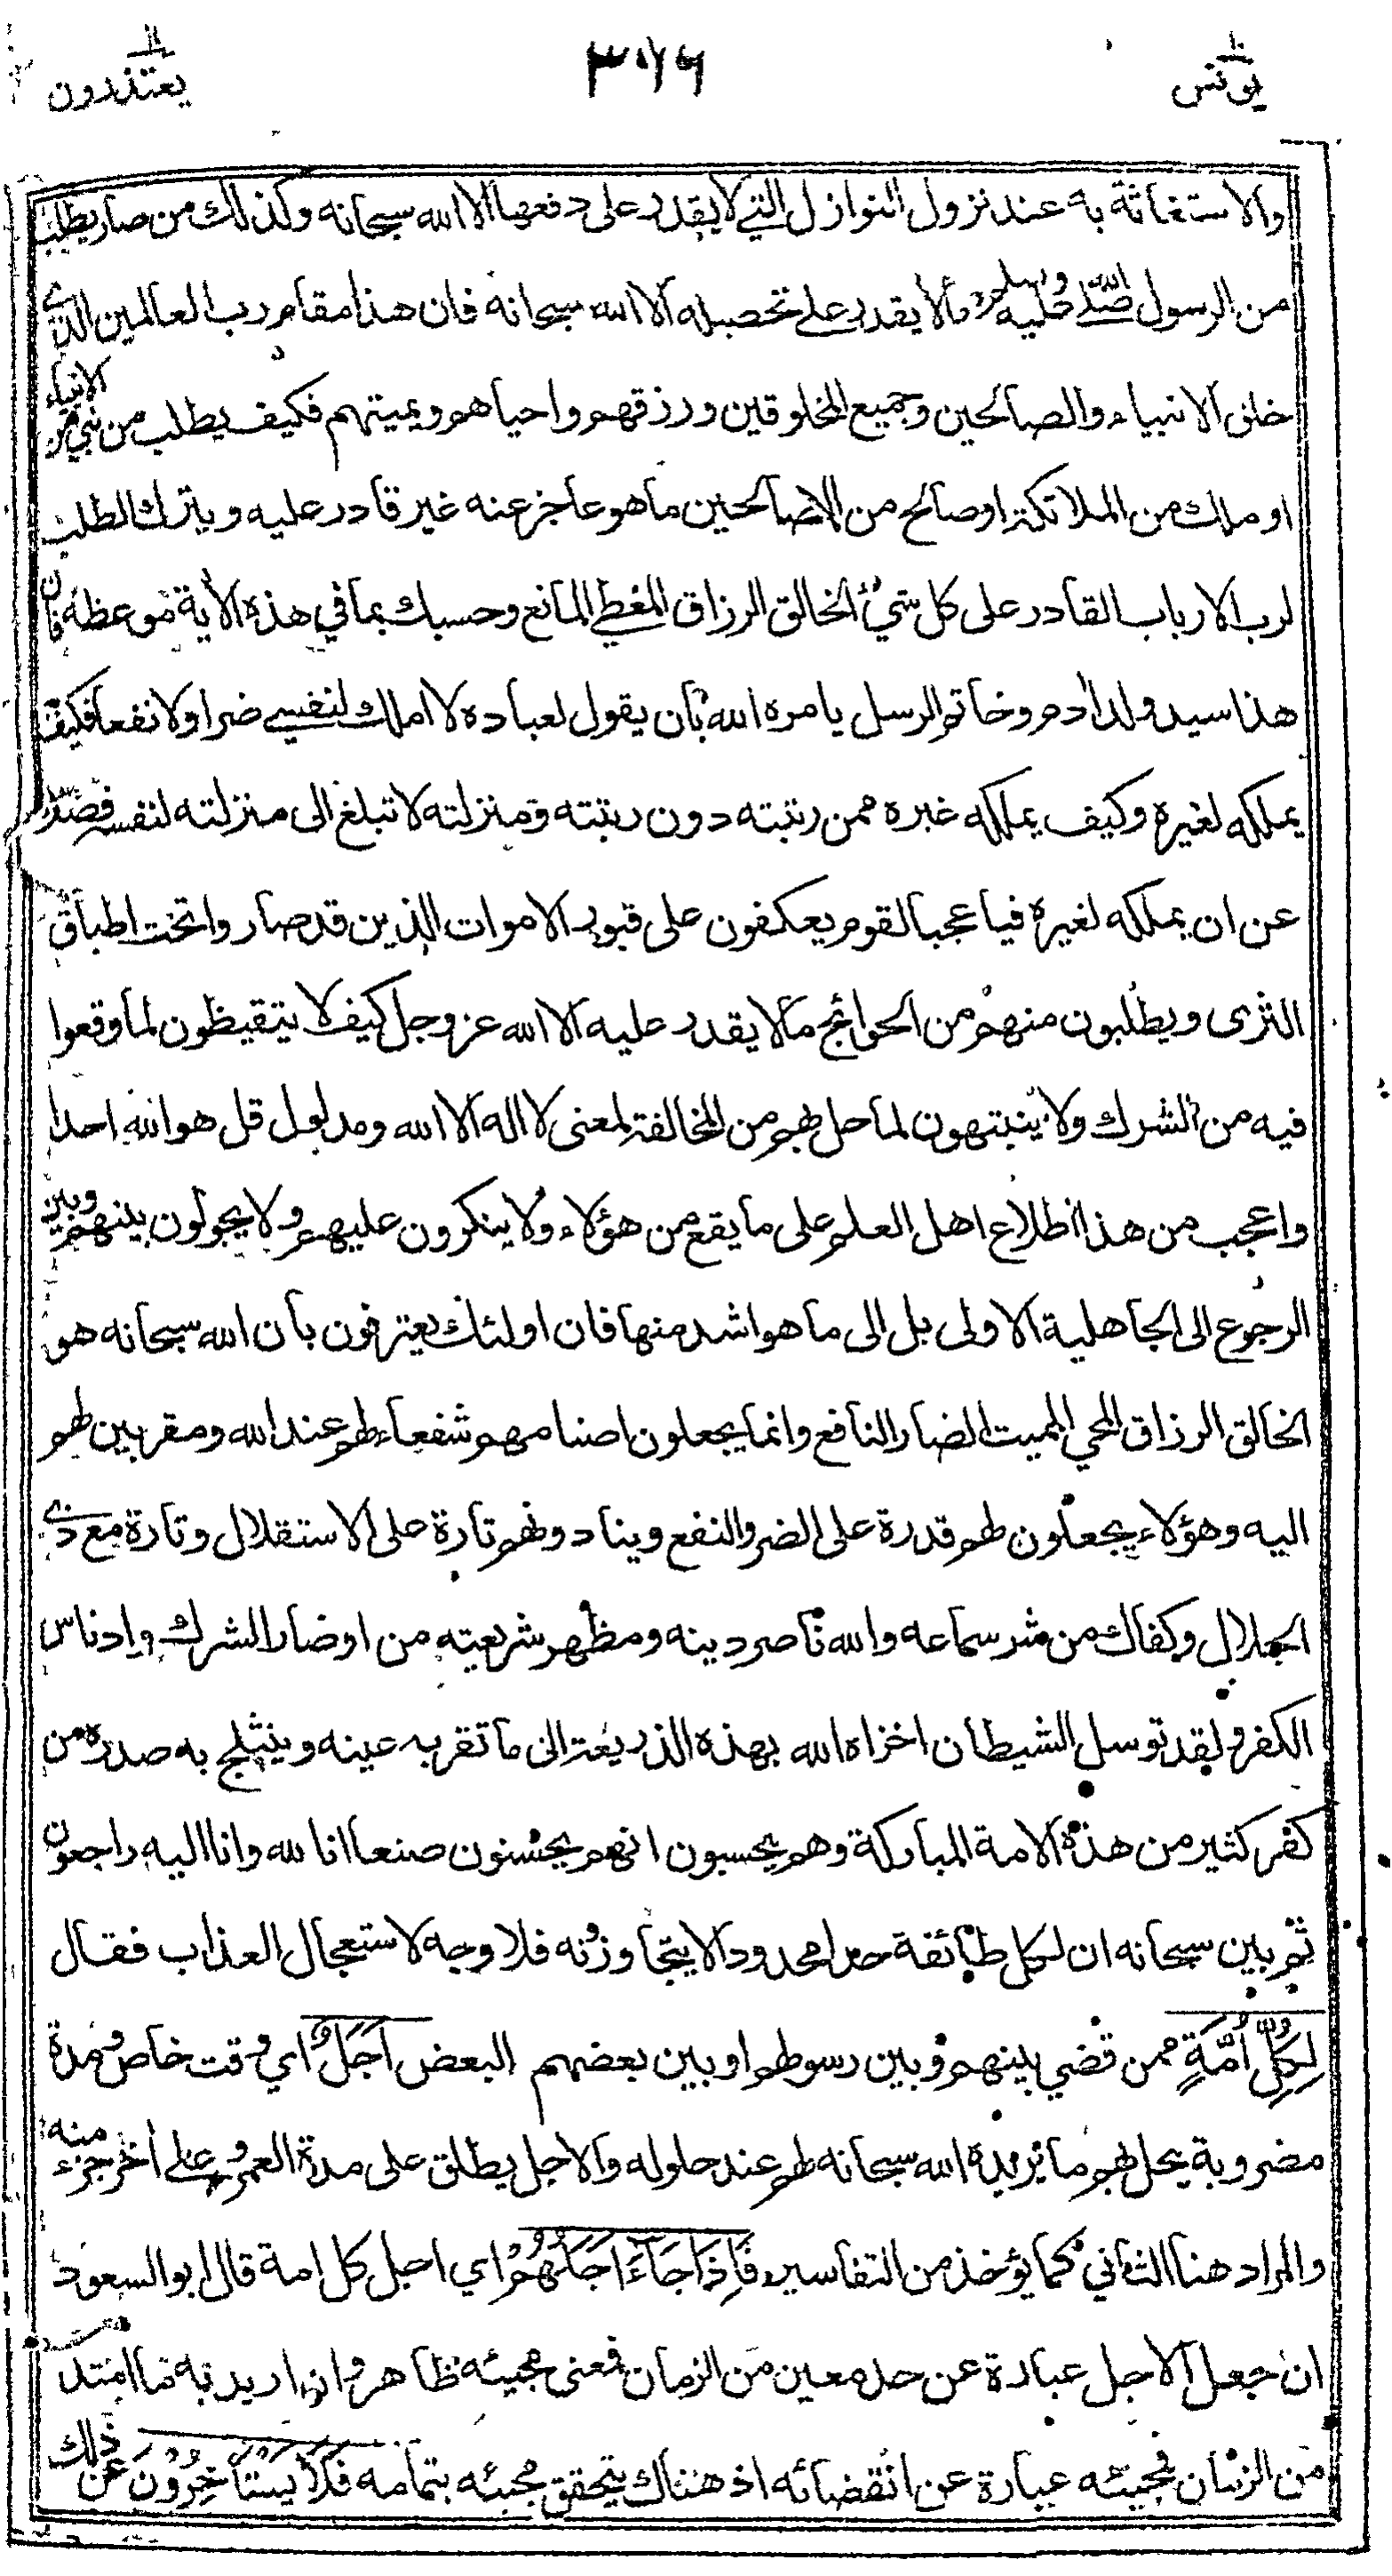 يونس ١٠
٣٠٧٦
يعتذرون ١١
والاستغاثة به عند نزول النوازل التي لا يقدر على دفعها الا الله سبحانه وكذلك من صار يطلب
من الرسول صلى الله عليه وسلم مالا يقدر على تحصيله الا الله سبحانه فان هذا مقام رب العالمين الذي
خلق الانبياء والصالحين وجميع المخلوقين ورزقهم واحياهم ويميتهم فكيف يطلب من نبي من الانبياء
او ملك من الملائكة او صالح من الصالحين ما هو عاجز عنه غير قادر عليه ويترك الطلب
لرب الارباب القادر على كل شيء الخالق الرزاق المعطي المانع وحسبك بما في هذه الآية موعظة فان
هذا سيد ولد آدم وخاتم الرسل يامره الله بأن يقول لعباده لا املك لنفسي ضرا ولا نفعا فكيف
يملكه لغيره وكيف يملكه غيره ممن رتبته دون رتبته ومنزلته لا تبلغ الى منزلته لنفسه فضلا
عن ان يملكه لغيره فيا عجبا لقوم يعكفون على قبور الاموات الذين قد صاروا تحت اطباق
الثرى ويطلبون منهم من الحوائج مالا يقدر عليه الا الله عز وجل كيف لا يتيقظون لما وقعوا
فيه من الشرك ولا ينتبهون لما حل بهم من المخالفة لمعنى لا اله الا الله ومدلول قل هو الله احد
واعجب من هذا اطلاع اهل العلم على ما يقع من هؤلاء ولا ينكرون عليهم ولا يحولون بينهم وبين
الرجوع الى الجاهلية الاولى بل الى ما هو اشد منها فان اولئك يعترفون بأن الله سبحانه هو
الخالق الرزاق المحي المميت الضار النافع وانما يجعلون اصنامهم شفعاء لهم عند الله ومقربين لهم
اليه وهؤلاء يجعلون لهم قدرة على الضر والنفع وينادونهم تارة على الاستقلال وتارة مع ذي
الجلال وكفاك من شر سماعه والله ناصر دينه ومطهر شريعته من اوضار الشرك وادناس
الكفر ولقد توسل الشيطان اخزاه الله بهذه الذريعة الى ما تقر به عينه وينثلج به صدره من
كفر كثير من هذه الامة المباركة وهم يحسبون انهم يحسنون صنعا انا لله وانا اليه راجعون
ثم بين سبحانه ان لكل طائفة حدا محدودا لا يتجاوزنه فلا وجه لاستعجال العذاب فقال
لِكُلِّ أُمَّةٍ ممن قضي بينهم وبين رسولهم او بين بعضهم البعض أَجَلٌ اي وقت خاص ومدة
مضروبة يحل بهم ما يريده الله سبحانه لهم عند حلوله والاجل يطلق على مدة العمر وعلى آخر جزء منه
والمراد هنا الثاني كما يؤخذ من التفاسير فَإِذَا جَاءَ أَجَلُهُمْ اي اجل كل امة قال ابو السعود
ان جعل الاجل عبارة عن حد معين من الزمان فمعنى مجيئه ظاهر وان اريد به ما امتد
من الزمان فمجيئه عبارة عن انقضائه اذ هناك يتحقق مجيئه بتمامه فَلَا يَسْتَأْخِرُونَ عن ذلك